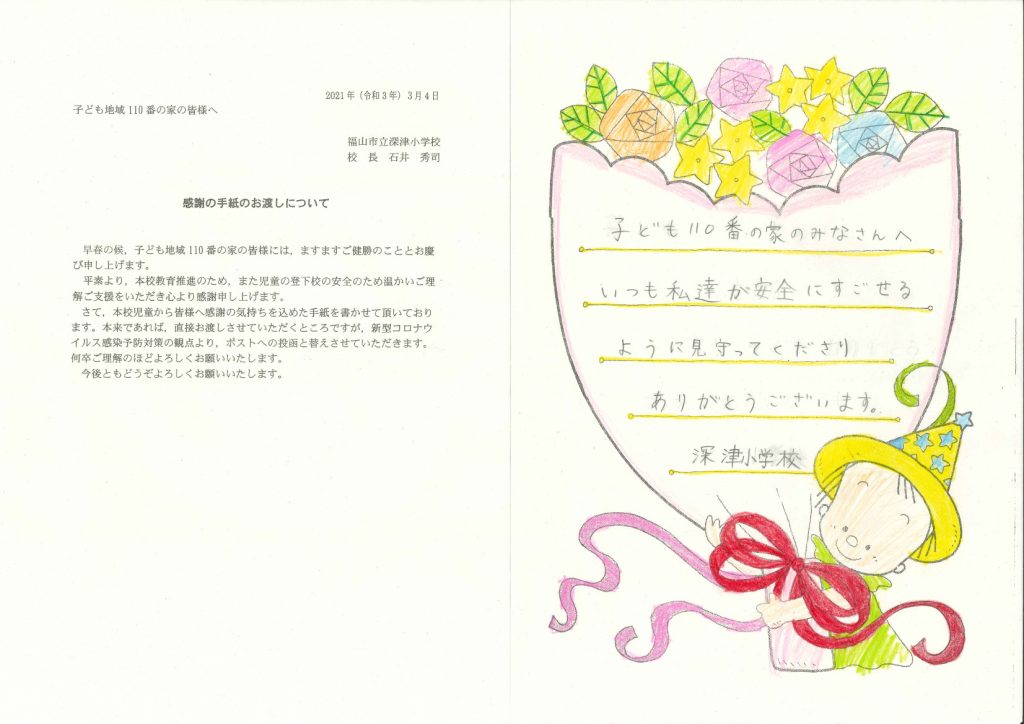 2021年（令和3年）3月4日
子ども地域110番の家の皆様へ
福山市立深津小学校
校　長　石井　秀司
感謝の手紙のお渡しについて
　早春の候，子ども地域110番の家の皆様には，ますますご健勝のこととお慶
び申し上げます。
　平素より，本校教育推進のため，また児童の登下校の安全のため温かいご理
解ご支援をいただき心より感謝申し上げます。
　さて，本校児童から皆様へ感謝の気持ちを込めた手紙を書かせて頂いており
ます。本来であれば，直接お渡しさせていただくところですが，新型コロナウ
イルス感染予防対策の観点より，ポストへの投函と替えさせていただきます。
何卒ご理解のほどよろしくお願いいたします。
　今後ともどうぞよろしくお願いいたします。
子ども110番の家のみなさんへ
いつも私達が安全にすごせる
ように見守ってくださり
ありがとうございます。
深津小学校